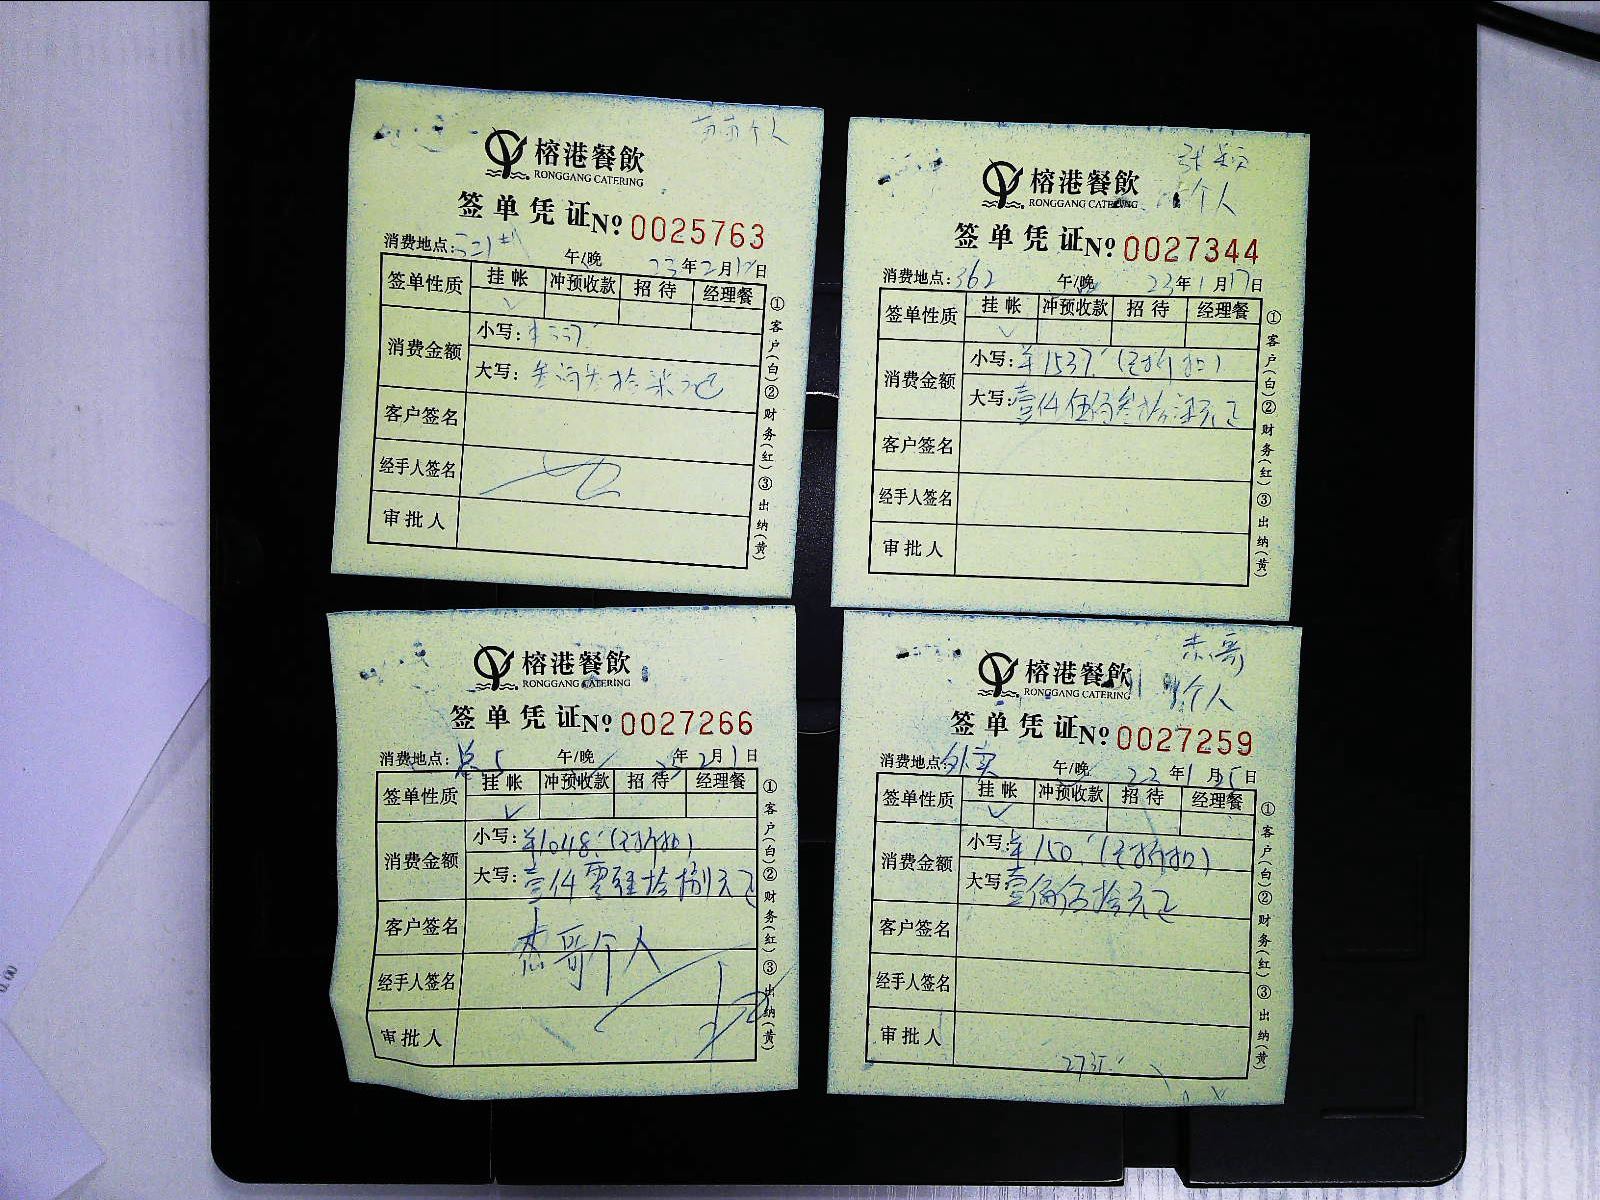 个人
榕港餐飲
RONGGANG CATERING
签单凭证№ 0025763
消费地点:
午/晚 23年2月1日
签单性质 挂帐 冲预收款 招待 经理餐
消费金额
小写:
大写:
客户签名
经手人签名
审批人
①客户(白)②财务(红)③出纳(黄)
个人
榕港餐飲
RONGGANG CATERING
签单凭证№ 0027344
消费地点:362 午/晚 23年1月17日
签单性质 挂帐 冲预收款 招待 经理餐
消费金额
小写:¥1537.
大写:壹仟伍佰叁拾柒元正
客户签名
经手人签名
审批人
①客户(白)②财务(红)③出纳(黄)
榕港餐飲
RONGGANG CATERING
签单凭证№ 0027266
消费地点: 5 午/晚 23年2月1日
签单性质 挂帐 冲预收款 招待 经理餐
消费金额
小写:¥1048.
大写:壹仟零肆拾捌元正
客户签名 哥个人
经手人签名
审批人
①客户(白)②财务(红)③出纳(黄)
哥
个人
榕港餐飲
RONGGANG CATERING
签单凭证№ 0027259
消费地点:外卖 午/晚 22年1月25日
签单性质 挂帐 冲预收款 招待 经理餐
消费金额
小写:¥150.
大写:壹佰伍拾元正
客户签名
经手人签名
审批人
①客户(白)②财务(红)③出纳(黄)